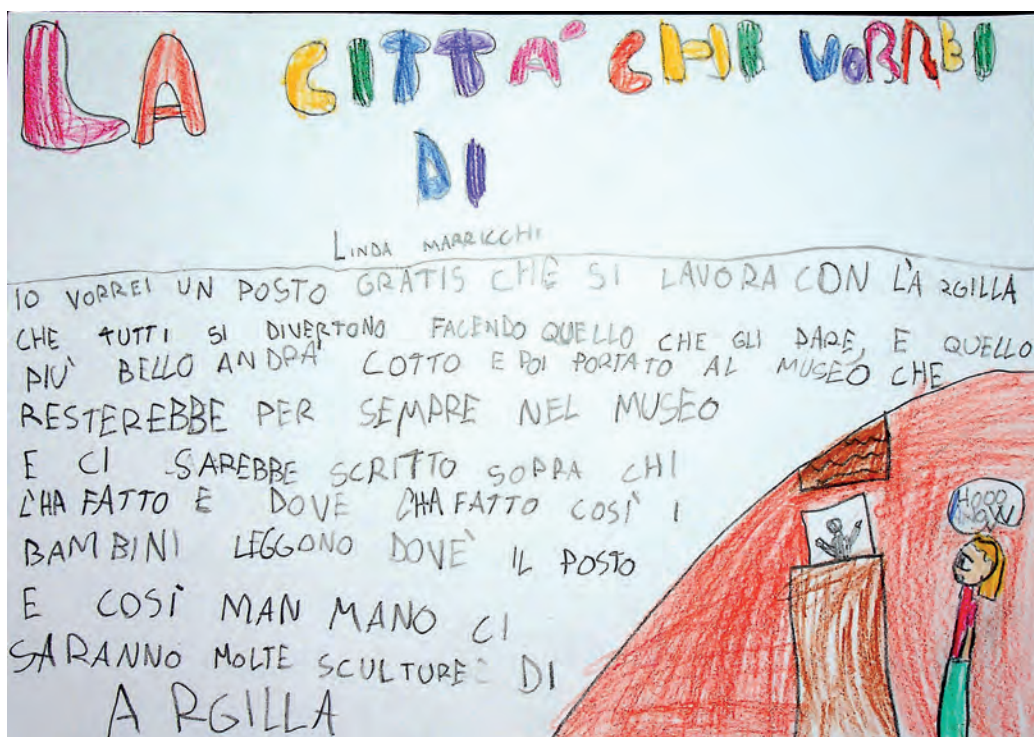 LA CITTA' CHE VORREI
DI
LINDA MARRICCHI
IO VORREI UN POSTO GRATIS CHE SI LAVORA CON L'ARGILLA
CHE TUTTI SI DIVERTONO FACENDO QUELLO CHE GLI PARE, E QUELLO
PIU' BELLO ANDRA' COTTO E POI PORTATO AL MUSEO CHE
RESTEREBBE PER SEMPRE NEL MUSEO
E CI SAREBBE SCRITTO SOPRA CHI
L'HA FATTO E DOVE L'HA FATTO COSÌ I
BAMBINI LEGGONO DOV'È IL POSTO
E COSÌ MAN MANO CI
SARANNO MOLTE SCULTURE DI
ARGILLA
HOOO